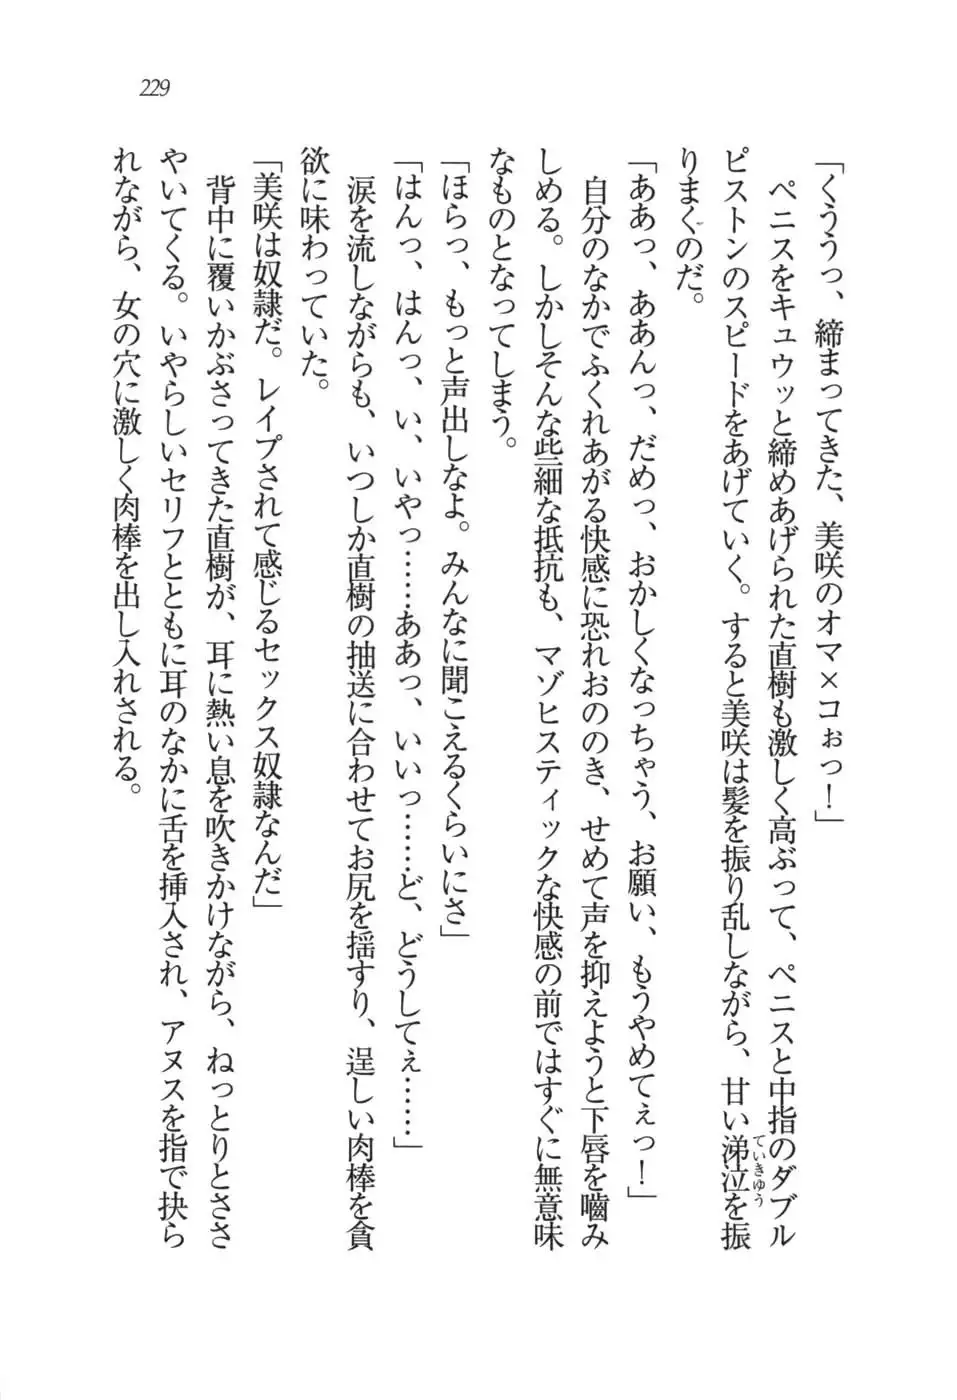 229
「くううっ、締まってきた、美咲のオマ×コぉっ！」
ペニスをキュウッと締めあげられた直樹も激しく高ぶって、ペニスと中指のダブル
ピストンのスピードをあげていく。すると美咲は髪を振り乱しながら、甘い涕泣ていきゆうを振
りまくのだ。
「ああっ、ああんっ、だめっ、おかしくなっちゃう、お願い、もうやめてぇっ！」
自分のなかでふくれあがる快感に恐れおののき、せめて声を抑えようと下唇を嚙み
しめる。しかしそんな些細な抵抗も、マゾヒスティックな快感の前ではすぐに無意味
なものとなってしまう。
「ほらっ、もっと声出しなよ。みんなに聞こえるくらいにさ」
「はんっ、はんっ、い、いやっ……ああっ、いいっ……ど、どうしてぇ……」
涙を流しながらも、いつしか直樹の抽送に合わせてお尻を揺すり、逞しい肉棒を貪
欲に味わっていた。
「美咲は奴隷だ。レイプされて感じるセックス奴隷なんだ」
背中に覆いかぶさってきた直樹が、耳に熱い息を吹きかけながら、ねっとりとささ
やいてくる。いやらしいセリフとともに耳のなかに舌を挿入され、アヌスを指で抉ら
れながら、女の穴に激しく肉棒を出し入れされる。